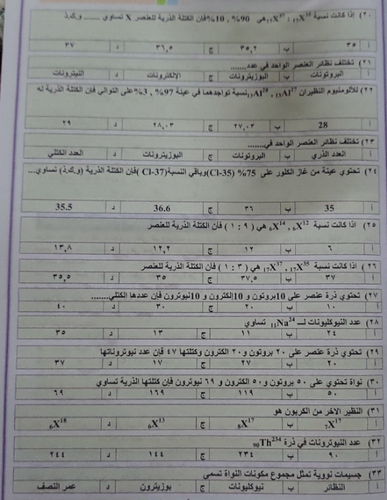 ٢٠) إذا كانت نسبة X³⁵ : ₁₇X³⁷ هي 90% , 10% فإن الكتلة الذرية للعنصر X تساوي ....... و.ك.ذ
أ ٣٥ ب ٣٥,٢ ج ٣٦,٥ د ٣٧
٢١) تختلف نظائر العنصر الواحد في عدد......
أ البروتونات ب البوزيترونات ج الإلكترونات د النيترونات
٢٢) للألومنيوم النظيران ₁₃Al²⁷ , ₁₃Al²⁸ نسبة تواجدهما في عينة 97% , 3% على التوالي فإن الكتلة الذرية له
أ 28 ب ٢٧,٠٣ ج ٢٨,٠٣ د ٢٩
٢٣) تختلف نظائر العنصر الواحد في.......
أ العدد الذري ب البروتونات ج البوزيترونات د العدد الكتلي
٢٤) تحتوي عينة من غاز الكلور على 75% (Cl-35) وباقي النسبة (Cl-37) فإن الكتلة الذرية (و.ك.ذ) تساوي...
أ 35 ب ٣٦ ج 36.6 د 35.5
٢٥) اذا كانت نسبة ₆X¹² , ₆X¹⁴ هي (٩ : ١) فإن الكتلة الذرية للعنصر
أ ٦ ب ١٢ ج ١٢,٢ د ١٣,٨
٢٦) اذا كانت نسبة ₁₇X³⁵ , ₁₇X³⁷ هي (٣ : ١) فإن الكتلة الذرية للعنصر
أ ٣٧ ب ٣٧,٥ ج ٣٥ د ٣٥,٥
٢٧) تحتوي ذرة عنصر على 10 بروتون و 10 إلكترون و 10 نيوترون فإن عددها الكتلي.......
أ ١٠ ب ٢٠ ج ٣٠ د ٤٠
٢٨) عدد النيوكليونات لـ ₁₁Na²⁴ تساوي
أ ٢٤ ب ١١ ج ١٣ د ٣٥
٢٩) تحتوي ذرة عنصر على ٢٠ بروتون و ٢٠ الكترون وكتلتها ٤٧ فإن عدد نيوتروناتها
أ ٢٠ ب ٢٧ ج ١٧ د ٣٧
٣٠) نواة تحتوي على ٥٠ بروتون و ٥٠ الكترون و ٦٩ نيوترون فإن كتلتها الذرية تساوي
أ ٥٠ ب ١١٩ ج ١٦٩ د ٦٩
٣١) النظير الاخر من الكربون هو
أ ₇X¹⁷ ب ₆X¹⁷ ج ₆X¹³ د ₆X¹⁸
٣٢) عدد النيترونات في ذرة ₉₀Th²³⁴
أ ٩٠ ب ٢٣٤ ج ١٤٤ د ٢٤٤
٣٣) جسيمات نووية تمثل مجموع مكونات النواة تسمى
أ النظائر ب نيوكليونات ج بوزيترون د عمر النصف